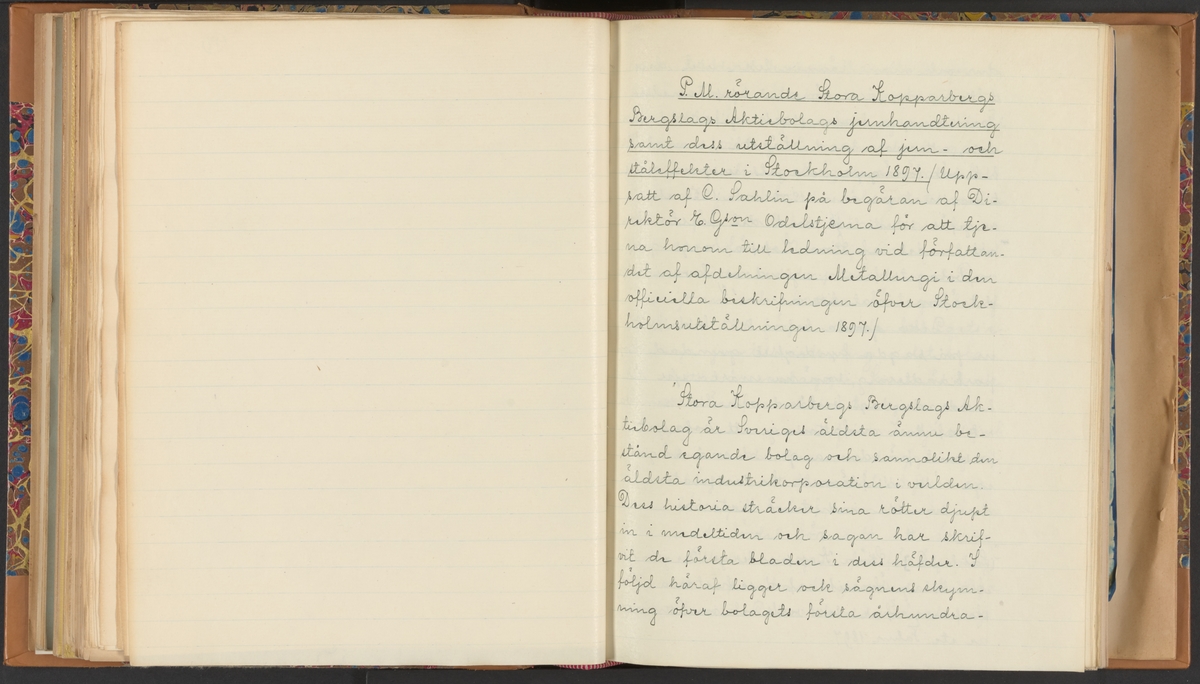 P. M. rörande Stora Kopparbergs
Bergslags Aktiebolags jernhandtering
samt dess utställning af jern- och
ståleffekter i Stockholm 1897. /Upp-
satt af C. Sahlin på begäran af Di-
rektör E. Gson Odelstjerna för att tje-
na honom till ledning vid författan-
det af afdelningen Metallurgi i den
officiella beskrifningen öfver Stock-
holmsutställningen 1897./
Stora Kopparbergs Bergslags Ak-
tiebolag är Sveriges äldsta ännu be-
stånd egande bolag och sannolikt den
äldsta industrikorporation i verlden.
Dess historia sträcker sina rötter djupt
in i medeltiden och sagan har skrif-
vit de första bladen i dess häfder. I
följd häraf ligger ock sägnens skym-
ning öfver bolagets första århundra-